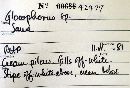 No 00688 42977
Glaeophorus sp.
Sand
11.   .81
Cream pileus. Gills off-white.
Stipe off-white above, cream below